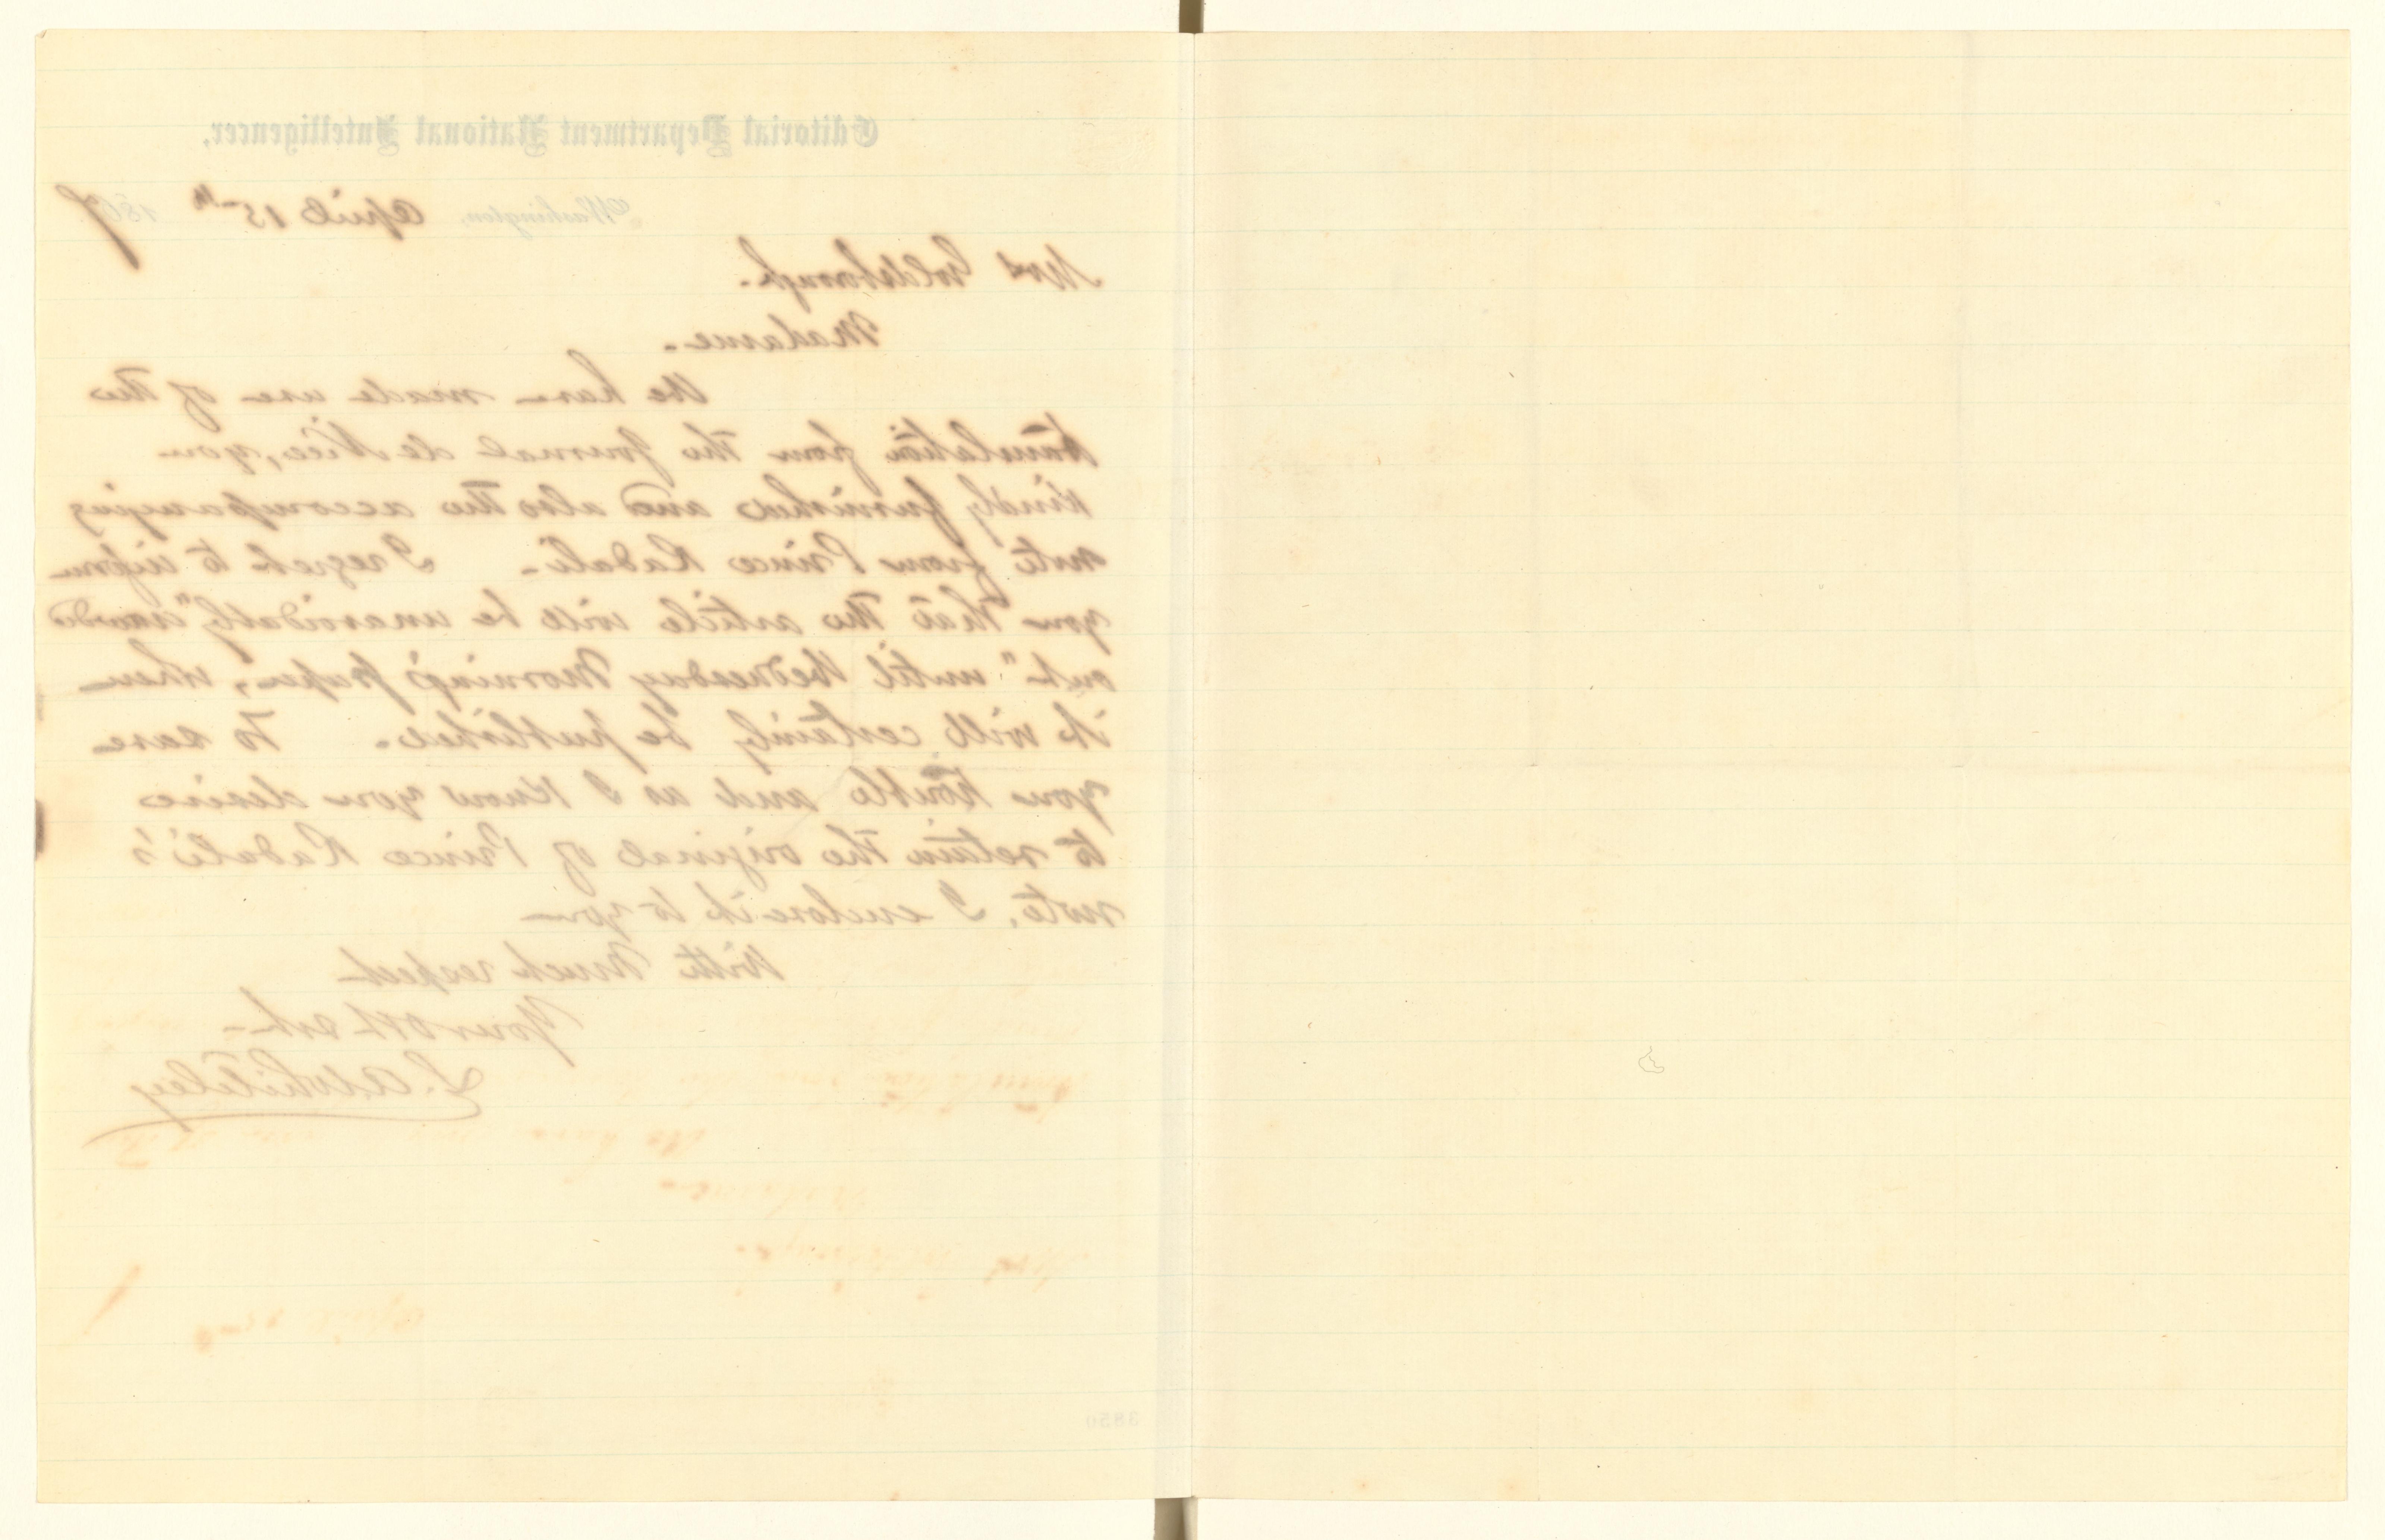 Editorial Department National Intelligencer,
Washington, April 15th 1867
Mrs Goldsborough.
Madame.
We have made use of the
translation from the Journal de Nice, you
kindly furnished and also the accompanying
note from Prince Radali. I regret to inform
you that the article will be unavoidably "crowded
out" until Wednesday Morning's paper, when
it will certainly be published. To save
you trouble and as I know you desire
to retain the original of Prince Radali's
note, I enclose it to you
With Much respect
Your Obt Svt
L. A. Whiteley
3850